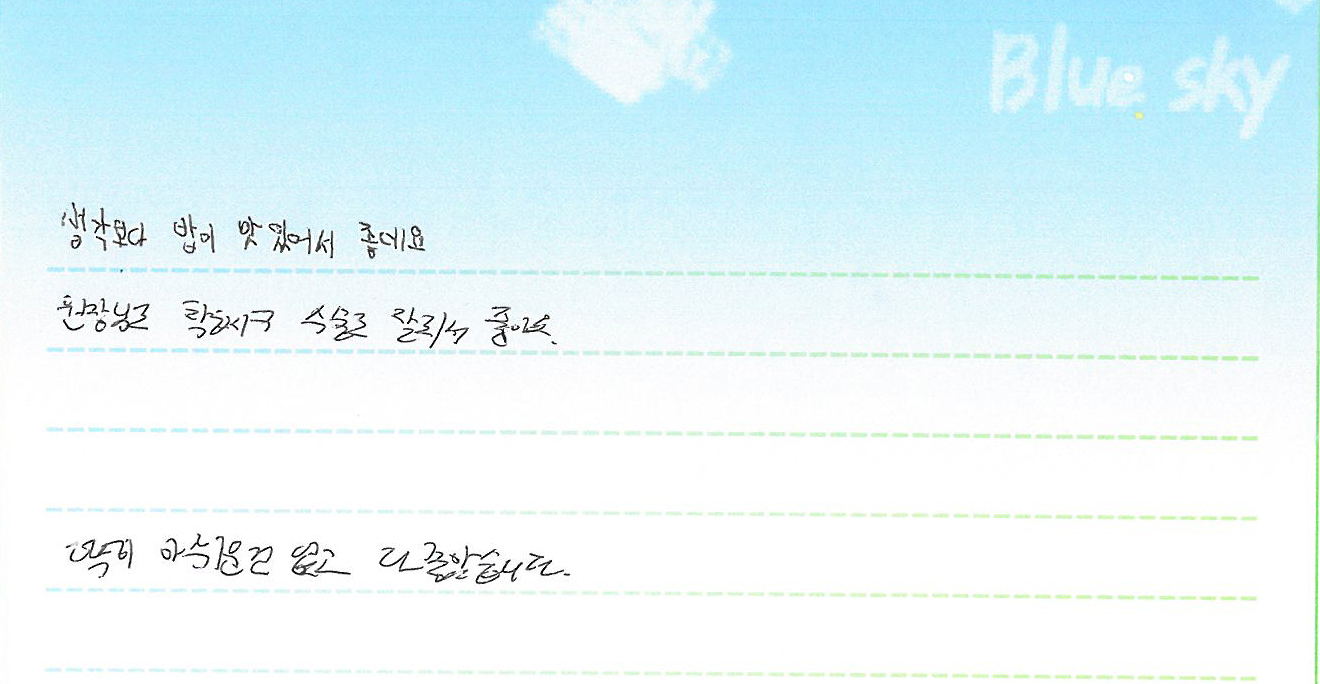 Blue sky
생각보다 밥이 맛있어서 좋네요
원장님도 착하시구 수술도 잘되서 좋아요.
딱히 아쉬운건 없고 다 좋았습니다.